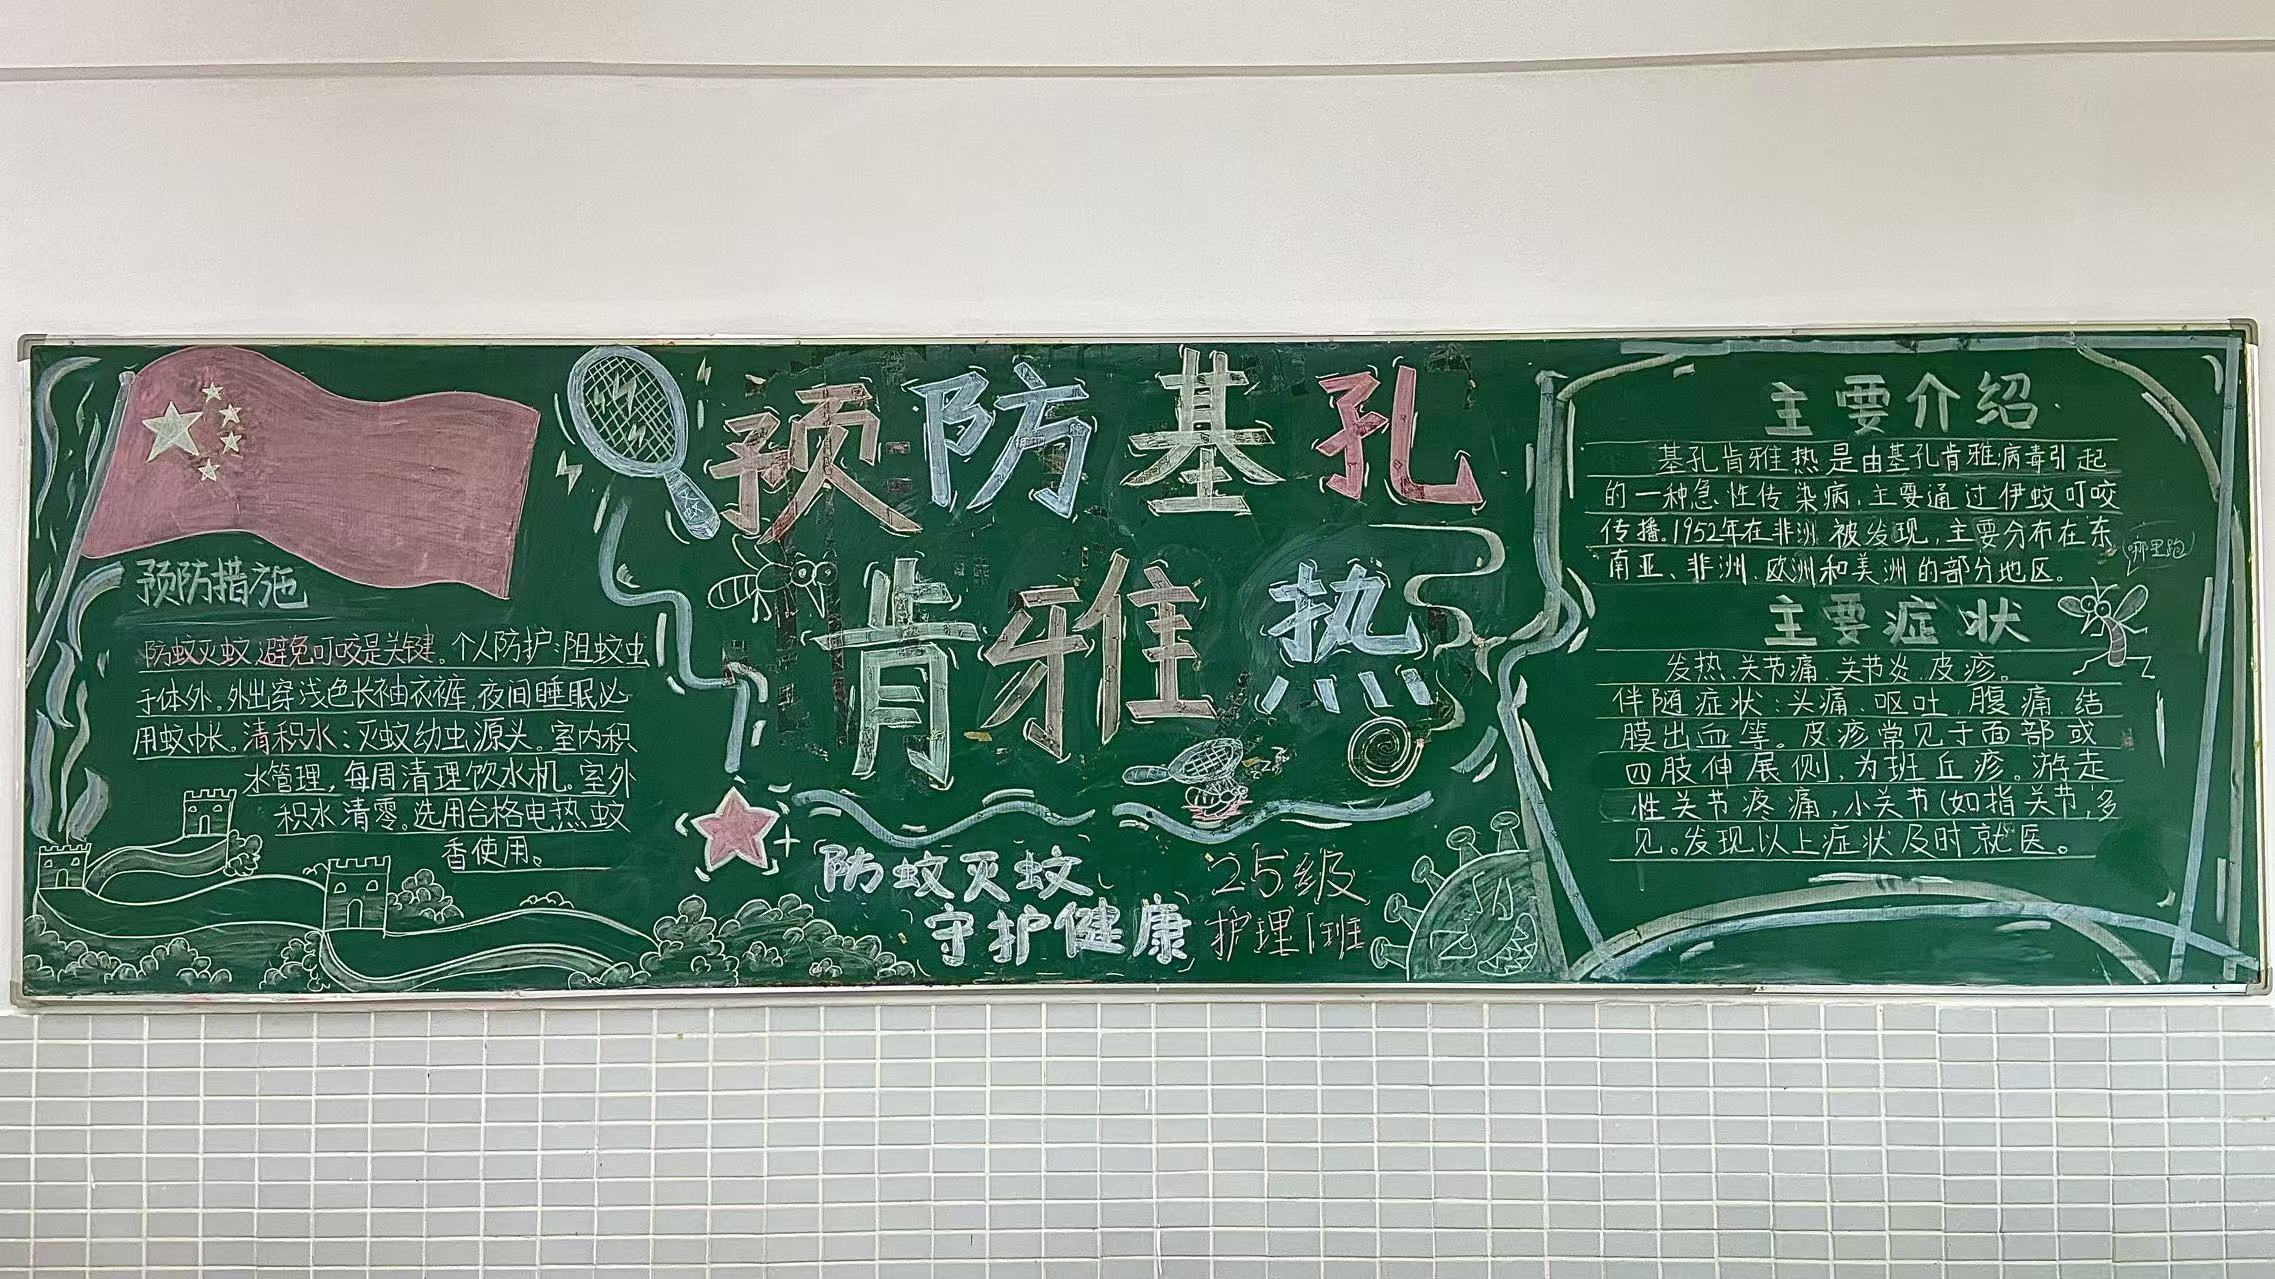 预防基孔
肯雅热
灭蚊
预防措施
防蚊灭蚊,避免叮咬是关键。个人防护:阻蚊虫
于体外。外出穿浅色长袖衣裤,夜间睡眠必
用蚊帐。清积水:灭蚊幼虫源头。室内积
水管理,每周清理饮水机。室外
积水清零。选用合格电热蚊
香使用。
防蚊灭蚊
守护健康
25级
护理1班
主要介绍
基孔肯雅热是由基孔肯雅病毒引起
的一种急性传染病,主要通过伊蚊叮咬
传播。1952年在非洲被发现,主要分布在东
南亚、非洲、欧洲和美洲的部分地区。
哪里跑
主要症状
发热、关节痛、关节炎、皮疹。
伴随症状:头痛、呕吐、腹痛、结
膜出血等。皮疹常见于面部或
四肢伸展侧,为班丘疹。游走
性关节疼痛,小关节(如指关节,多
见。发现以上症状及时就医。